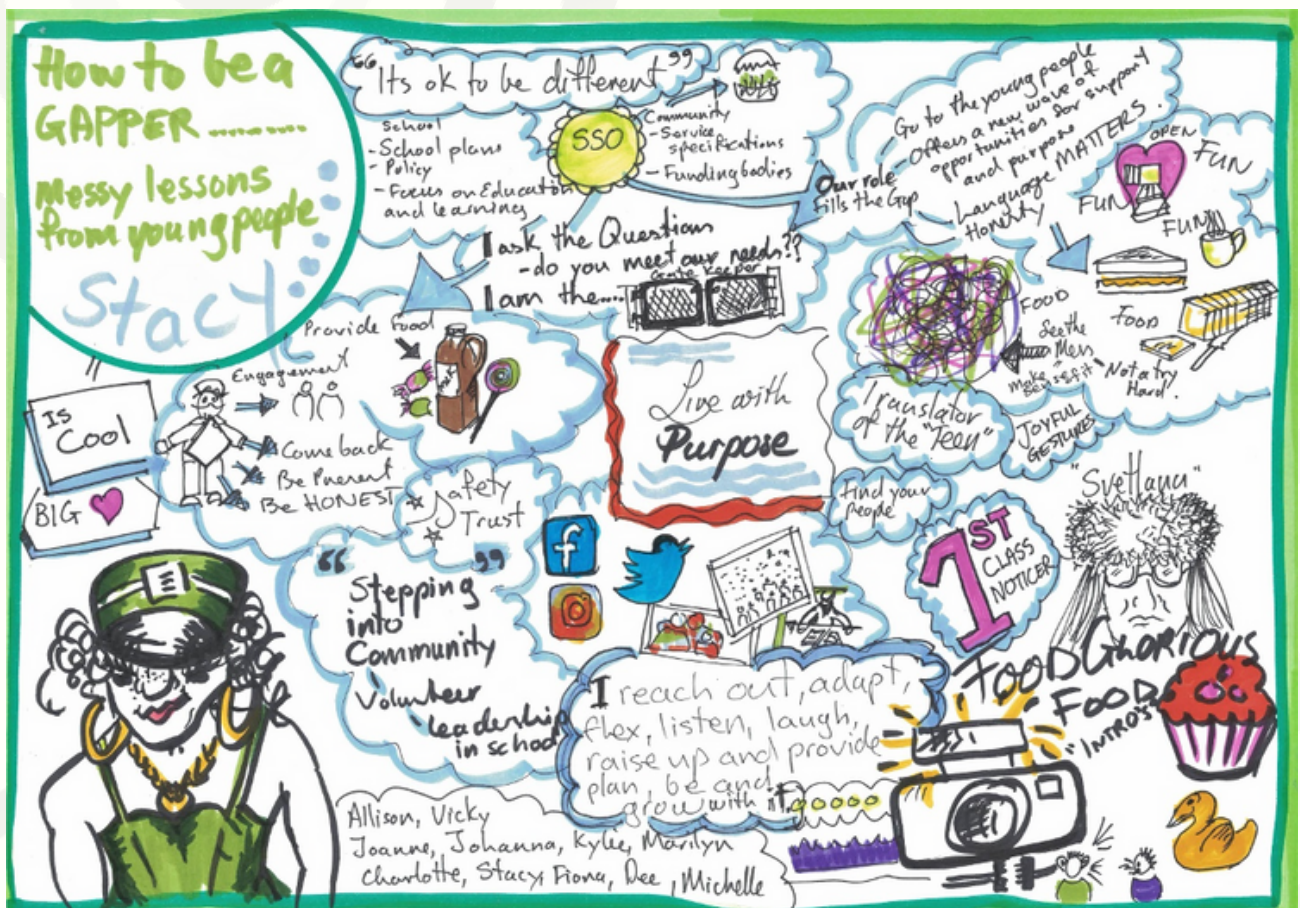 How to be a
GAPPER.........
Messy lessons
from young people
Stacy
"Its ok to be different"
School
- School plans
- Policy
- Focus on Education
and learnings
SSO
Community
- Service
specifications
- Funding bodies
Our role
fills the Gap
Go to the young people
- Offers a new wave of
opportunities for support
and purpose
Language MATTERS.
Honesty
OPEN
FUN
FUN
FUN
I ask the Questions
- do you meet our needs??
I am the....
Gate Keeper
Provide food
Engagement
Come back
Be Present
Be HONEST
Is
Cool
BIG
Safety
Trust
Live with
Purpose
FOOD
See the
Mess
Make
sense of it
FOOD
"Not a try
Hard."
Translator
of the "Teen"
JOYFUL
GESTURES
Find your
people
"Svetlana"
1ST
CLASS
NOTICER
"Stepping
into
Community"
Volunteer
leadership
in school
I reach out, adapt,
flex, listen, laugh,
raise up and provide
plan, be and
grow with it.
FOOD GLORIOUS
FOOD
"INTRO'S"
Allison, Vicky
Joanne, Johanna, Kylie, Marilyn
Charlotte, Stacy, Fiona, Dee, Michelle